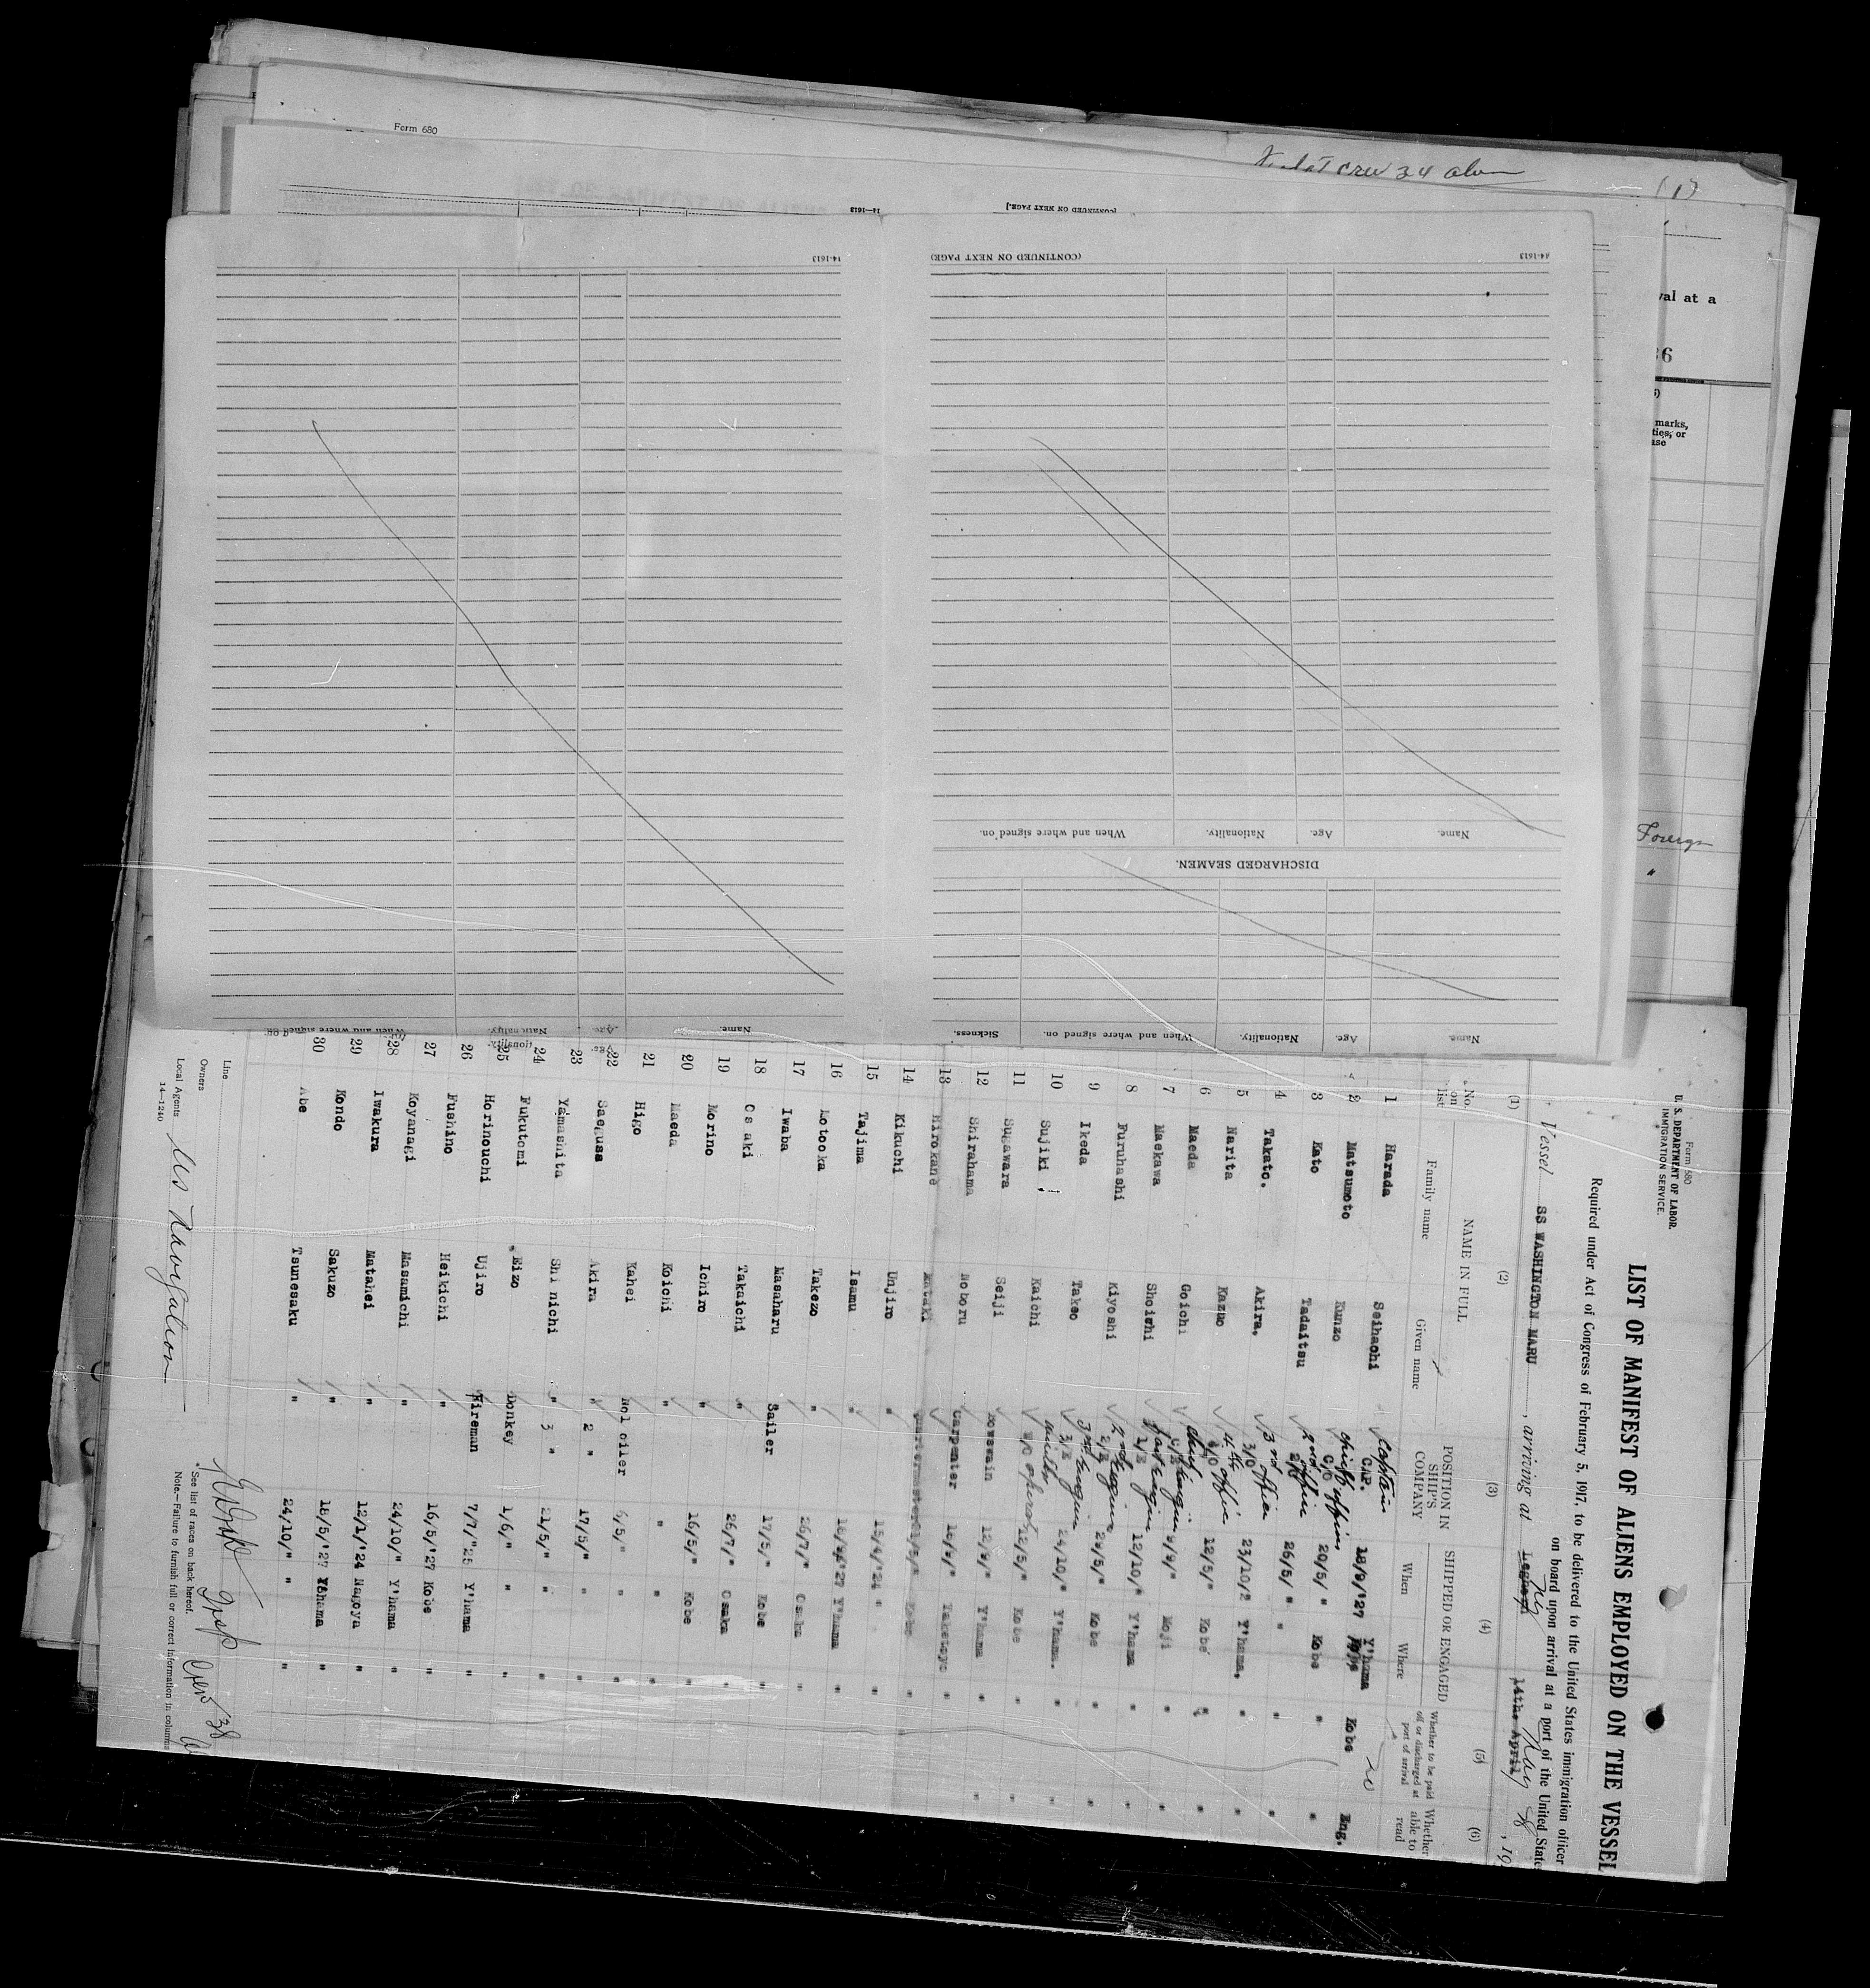 Form 680
crew 34
14-1613
[CONTINUED ON NEXT PAGE.]
14-1613
(CONTINUED ON NEXT PAGE)
14-1613
val at a
36
marks,
ties, or
ase
Foreign
"
Name.
Age.
Nationality.
When and where signed on.
DISCHARGED SEAMEN.
Name.
Age.
Nationality.
When and where signed on.
Sickness.
Name.
Age.
Nationality.
When and where signed on.
Form 680
U. S. DEPARTMENT OF LABOR
IMMIGRATION SERVICE.
LIST OF MANIFEST OF ALIENS EMPLOYED ON THE VESSEL
Required under Act of Congress of February 5, 1917, to be delivered to the United States immigration officer
on board upon arrival at a port of the United State
Vessel SS WASHINGTON MARU, arriving at NY 14th. April May 8, 19
(1) (2) (3) (4) (5) (6)
No. on list
NAME IN FULL
Family name Given name
POSITION IN SHIP'S COMPANY
SHIPPED OR ENGAGED
When Where
Whether to be paid off or discharged at port of arrival
Whether able to read
1 Harada Seihachi Captain CAP. 18/9/'27 Y'hama no
2 Matsumoto Kunzo chief officer C/O 20/5/ " Kobe Eng.
3 Kato Tadaitsu 2nd officer 26/5/ " " " "
4 Takato. Akira. 3rd officer 3/O 23/10/2 Y'hama. " "
5 Narita Kazuo 4th officer 12/5/" Kobe " "
6 Maeda Goichi chief engin 9/9/" Moji " "
7 Maekawa Shoichi 1/E 12/10/" Y'hama " "
8 Furuhashi Kiyoshi 2nd engineer 2/E 29/5/" Kobe " "
9 Ikeda Takeo 3rd engineer 3/E 24/10/" Y'hama. " "
10 Sujiki Kaichi 12/5/" Kobe " "
11 Sugawara Seiji Bowswain 12/9/" Y'hama " "
12 Shirahama Noboru Carpenter 18/9/" Taketoyo " "
13 Hirokane Quartermaster 21/5/" Kobe "
14 Kikuchi Unjiro " 15/4/'24 " "
15 Tajima Isamu " '27 Y'hama "
16 Motooka Takezo " 26/7/" Osaka "
17 Iwaba Masaharu Sailer 17/5/" Kobe "
18 Osaki Takaichi " 26/7/" Osaka "
19 Morino Ichiro " 16/5/" Kobe "
20 Maeda Koichi " " " "
21 Higo Kahei No1 oiler 6/5/" " "
22 Saegusa Akira " 2 " 17/5/" " "
23 Yamashita Shinichi " 3 " 21/5/" " "
24 Fukutomi Eizo Donkey 1/6/" " "
25 Horinouchi Ujiro Fireman 7/7/"25 Y'hama
26 Fushino Heikichi " 16/5/'27 Kobe "
27 Koyanagi Masamichi " 24/10/" Y'hama "
28 Iwakura Matahei " 12/1/'24 Nagoya "
29 Kondo Sakuzo " 18/5/'27 Y'hama "
30 Abe Tsunesaku " 24/10/" " "
Line
Owners
Local Agents US Navigation
14—1240
*See list of races on back hereof.
Note.—Failure to furnish full or correct information in columns
Crew 38